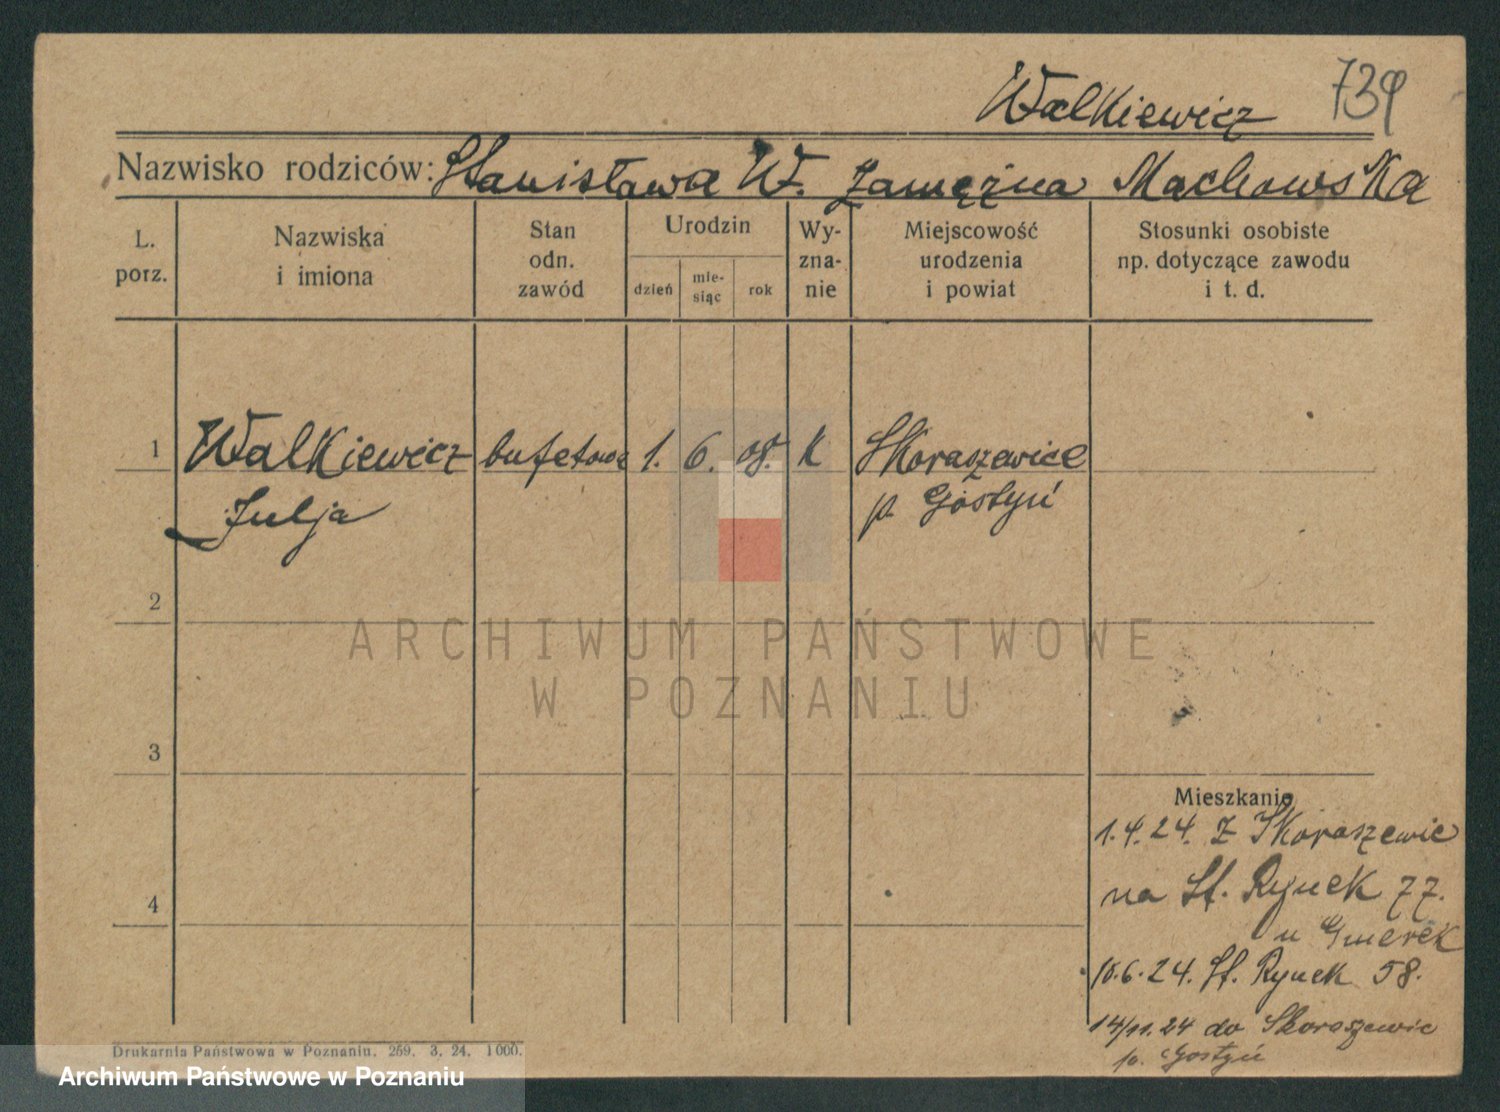 Walkiewicz 739
Nazwisko rodziców: Stanisława W. zamężna Machowska
L. porz.
Nazwiska i imiona
Stan odn. zawód
Urodzin
dzień
mie-
siąc
rok
Wy-
zna-
nie
Miejscowość urodzenia i powiat
Stosunki osobiste np. dotyczące zawodu i t. d.
1 Walkiewicz bufetowa 1. 6. 08. K Skoraszewice
Julja p. Gostyń
2
3
4
ARCHIWUM PAŃSTWOWE
W POZNANIU
Mieszkanie
1.4.24. z Skoraszewic
na St. Rynek 77.
u Gmerek
18.6.24. St. Rynek 58.
14/11.24 do Skoraszewic
p. Gostyń
Drukarnia Państwowa w Poznaniu. 259. 3. 24. 1000.
Archiwum Państwowe w Poznaniu